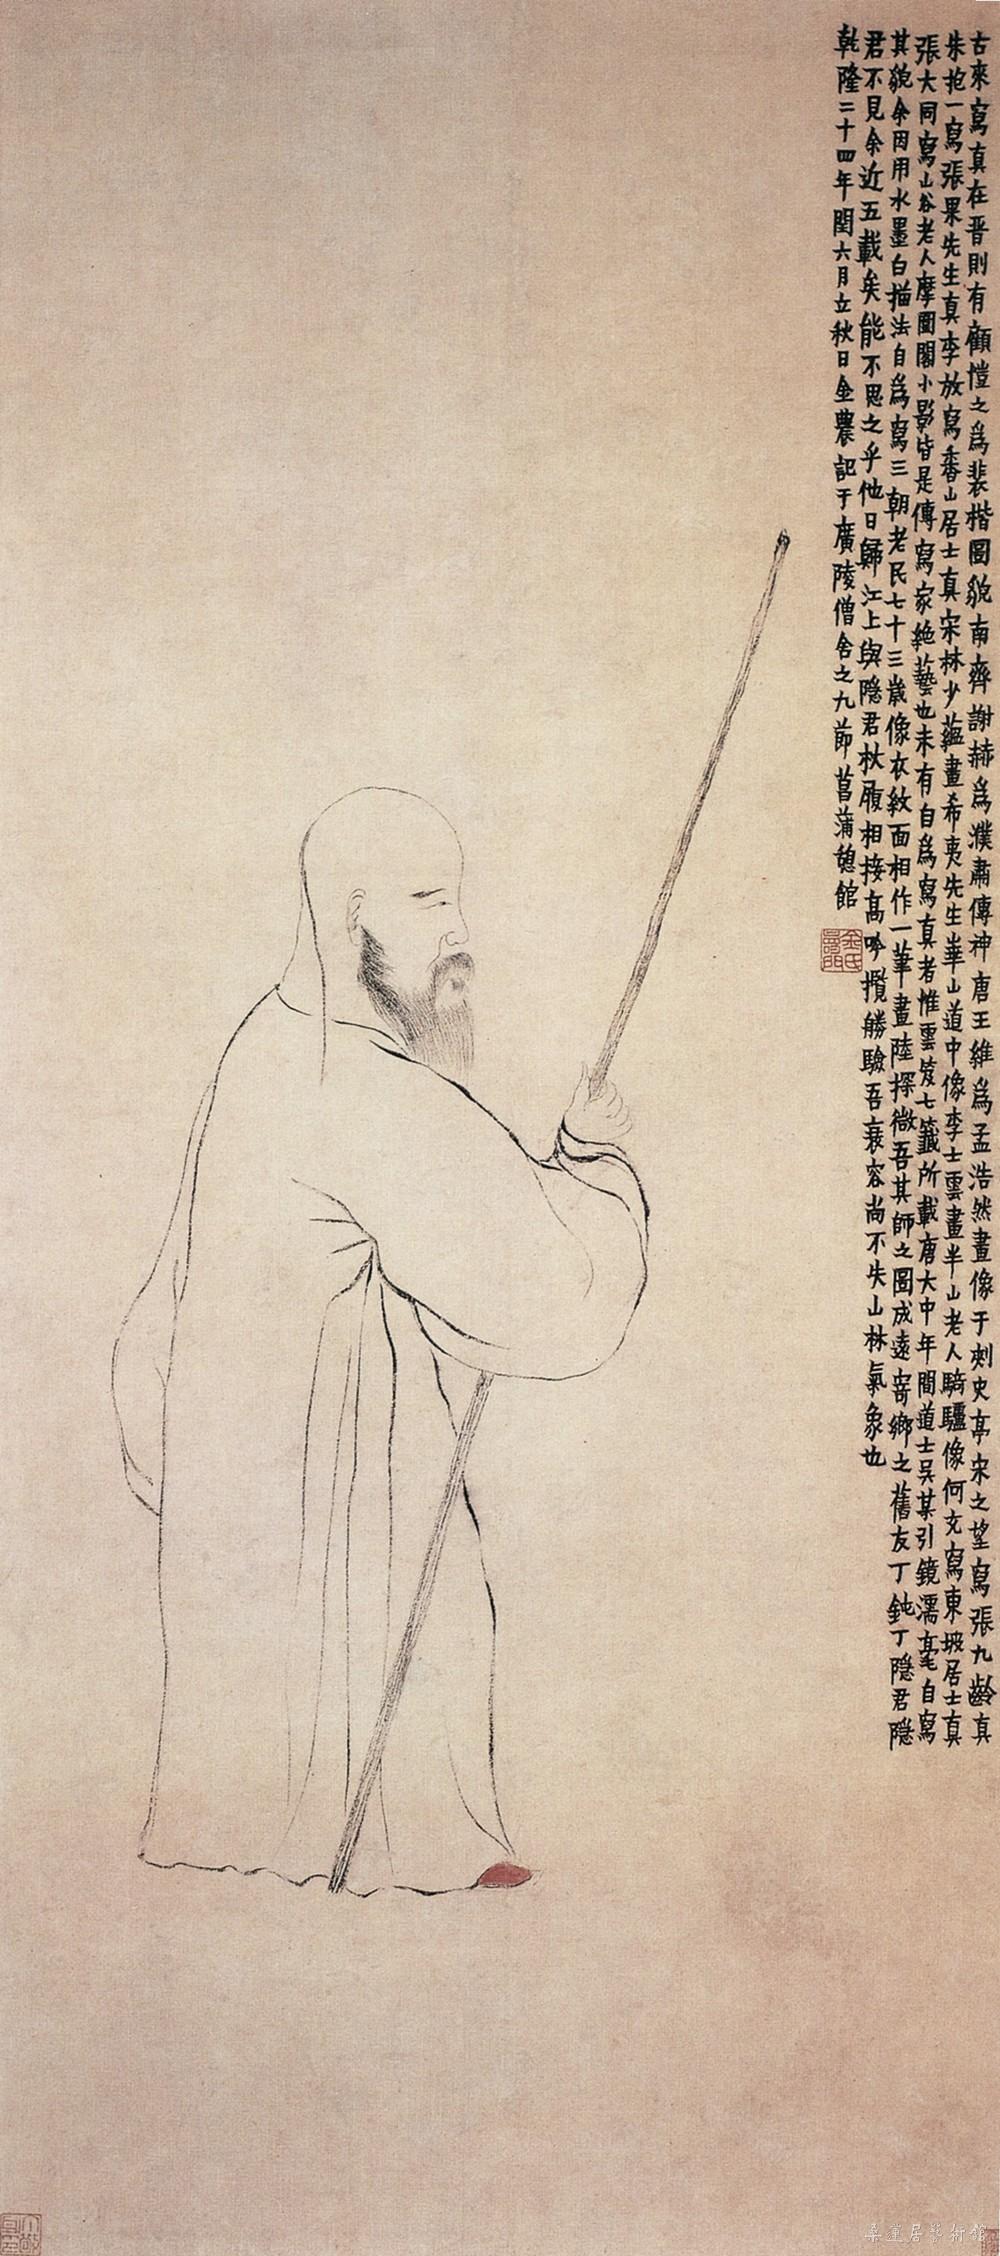 古來寫真在晋則有顧愷之為裴楷圖貌南齊謝赫為濮肅傳神唐王維為孟浩然畫像于刺史亭宋之望寫張九齡真
朱抱一寫張果先生真李放寫香山居士真宋林少蘊畫希夷先生華山道中像李士雲畫半山老人騎驢像何充寫東坡居士真
張大同寫山谷老人摩圍閣小影皆是傳寫家絶藝也未有自為寫真者惟雲笈七籤所載唐大中年間道士吳某引鏡濡毫自寫
其貌余因用水墨白描法自為寫三朝老民七十三歲像衣紋面相作一筆畫陸探微吾其師之圖成遠寄鄉之舊友丁鈍丁隱君隱
君不見余近五載矣能不思之乎他日歸江上與隱君杖履相接高吟攬勝驗吾衰容尚不失山林氣象也
乾隆二十四年閏六月立秋日金農記于廣陵僧舍之九節菖蒲憩館
金氏
桑蓮居藝術館